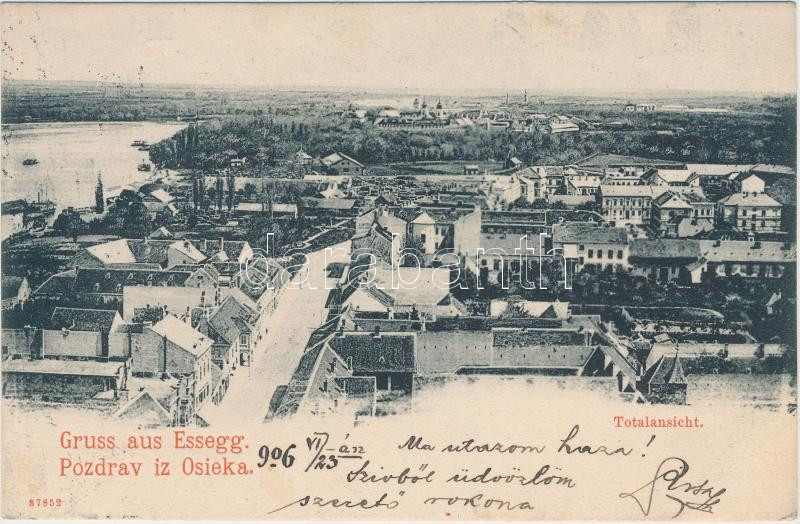 darabanth
Totalansicht.
Gruss aus Essegg.
Pozdrav iz Osieka.
906 VI/23-án
Ma utazom haza!
Szivből üdvözlöm
szerető rokona
37852